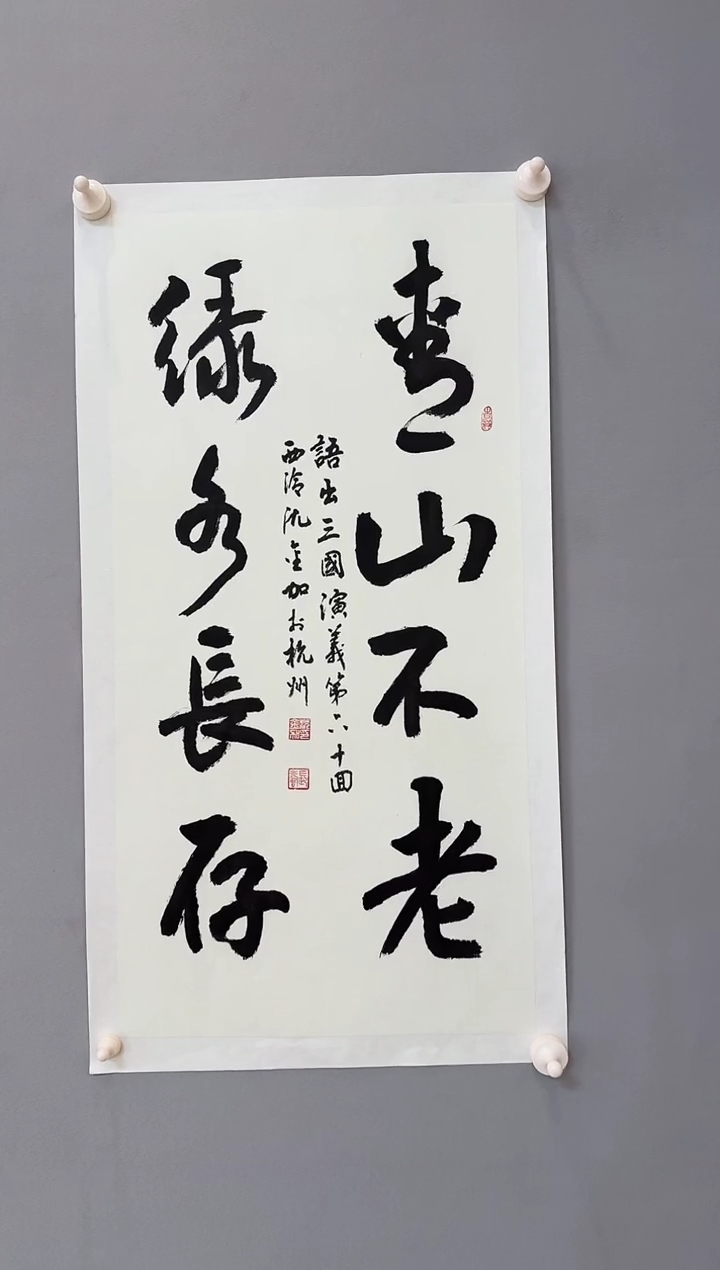 青山不老
綠水長存
語出三國演義第六十回
西泠沈金加於杭州